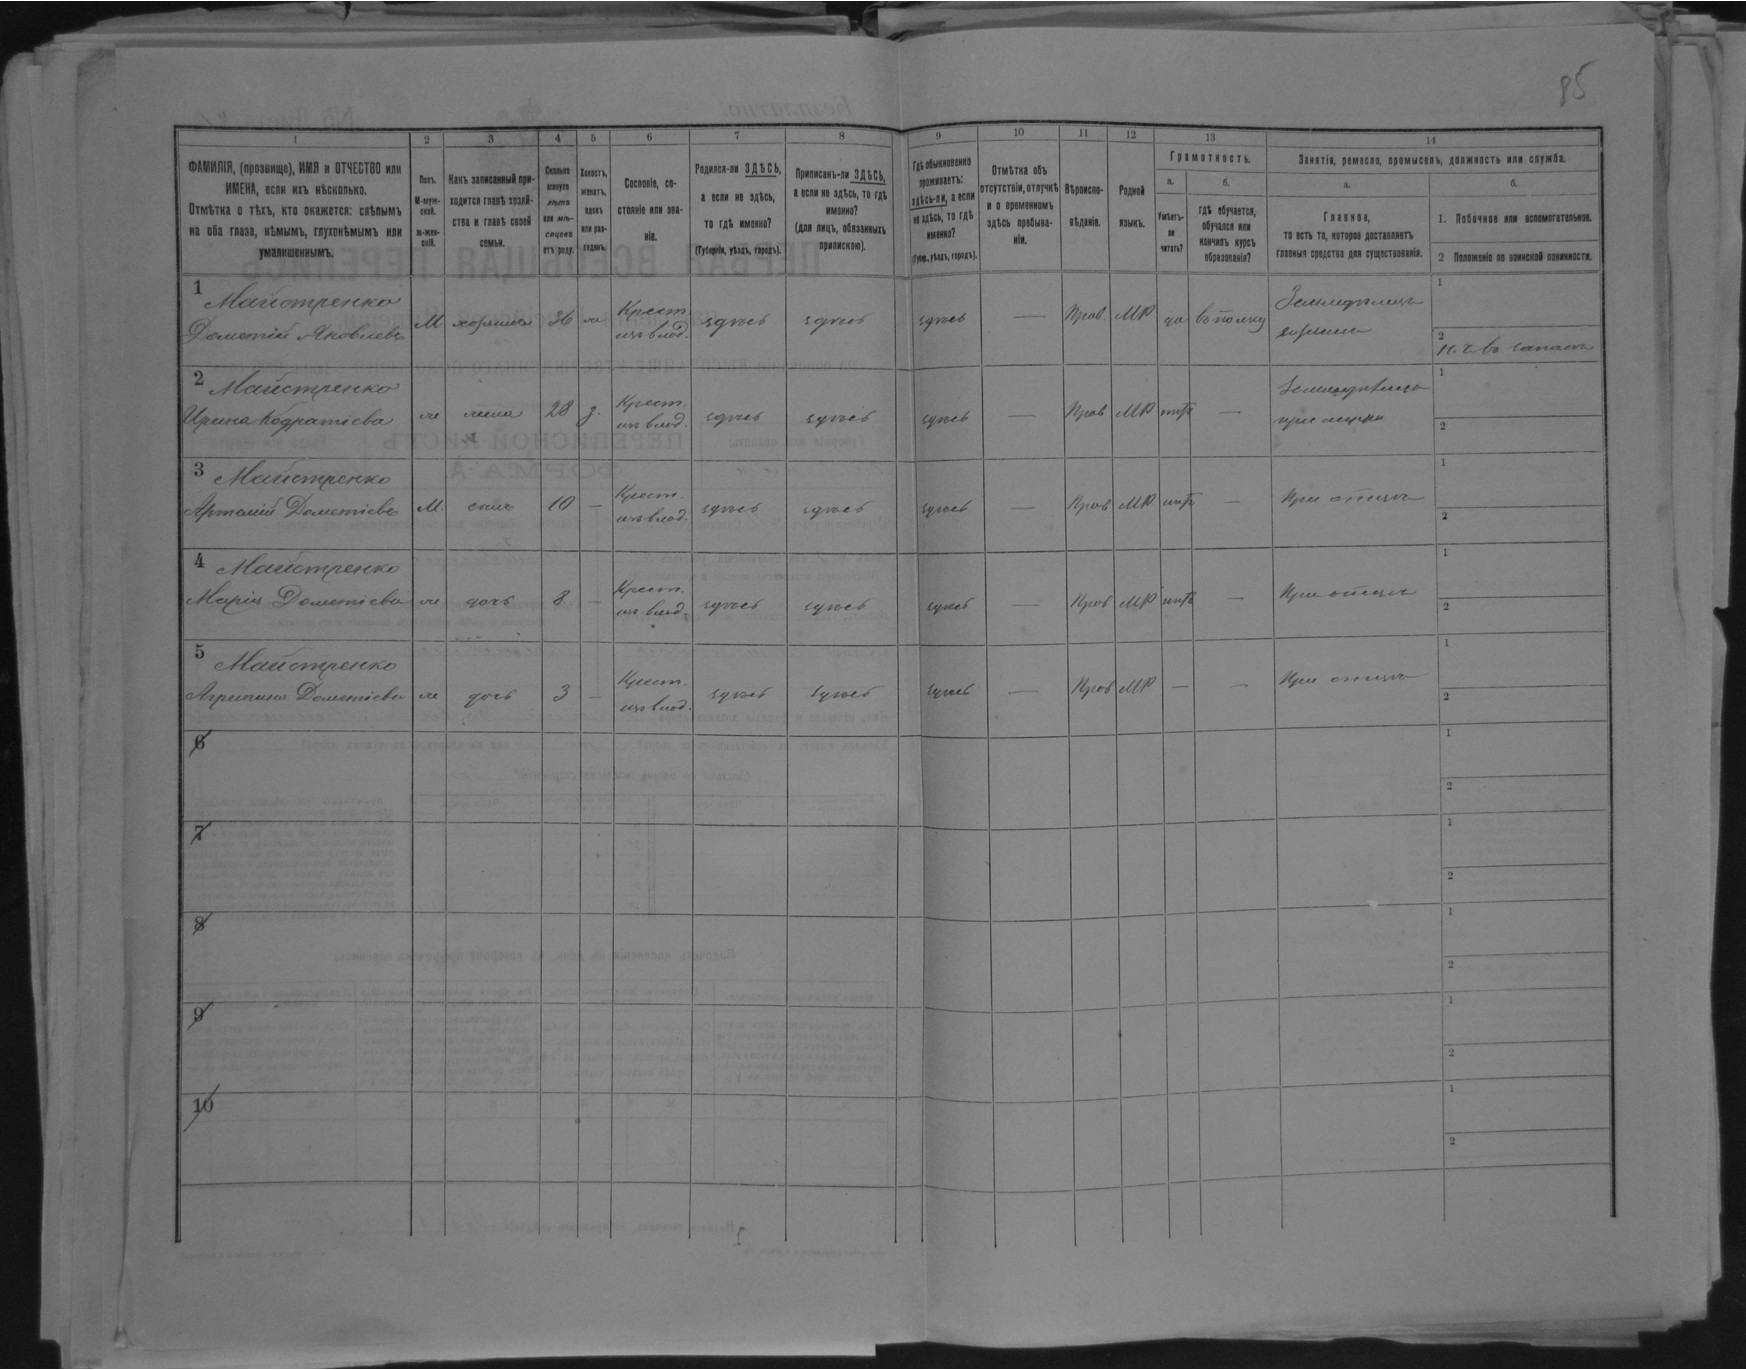 85
1 2 3 4 5 6 7 8 9 10 11 12 13 14
ФАМИЛІЯ, (прозвище), ИМЯ и ОТЧЕСТВО или
ИМЕНА, если ихъ нѣсколько.
Отмѣтка о тѣхъ, кто окажется: слѣпымъ
на оба глаза, нѣмымъ, глухонѣмымъ или
умалишеннымъ.
Полъ.
М-муж-
ской.
ж-жен-
скій.
Какъ записанный при-
ходится главѣ хозяй-
ства и главѣ своей
семьи.
Сколько
минуло
лѣтъ
или мѣ-
сяцевъ
отъ роду.
Холостъ,
женатъ,
вдовъ
или раз-
веденъ.
Сословіе, со-
стояніе или зва-
ніе.
Родился-ли ЗДѢСЬ,
а если не здѣсь,
то гдѣ именно?
(Губернія, уѣздъ, городъ).
Приписанъ-ли ЗДѢСЬ,
а если не здѣсь, то гдѣ
именно?
(для лицъ, обязанныхъ
припискою).
Гдѣ обыкновенно
проживаетъ:
здѣсь-ли, а если
не здѣсь, то гдѣ
именно?
(Губер., уѣздъ, городъ).
Отмѣтка объ
отсутствіи, отлучкѣ
и о временномъ
здѣсь пребыва-
ніи.
Вѣроиспо-
вѣданіе.
Родной
языкъ.
Грамотность.
а.
Умѣетъ-
ли
читать?
б.
гдѣ обучается,
обучался или
кончилъ курсъ
образованія?
Занятія, ремесло, промыселъ, должность или служба.
а.
Главное,
то есть то, которое доставляетъ
главныя средства для существованія.
б.
1. Побочное или вспомогательное.
2 Положеніе по воинской повинности.
1 Майстренко Крест. Земледѣлецъ 1
Дометій Яковлевъ М хозяинъ 36 ж изъ влад. здѣсь здѣсь здѣсь — Прав. МР да въ полку хозяинъ
2
2 Майстренко Крест. 1
Ирина Кодратіева ж жена 28 з. изъ влад. здѣсь здѣсь здѣсь — Прав МР нѣтъ — при мужѣ
2
3 Майстренко Крест. 1
Артемій Дометіевъ М. сынъ 10 — изъ влад. здѣсь здѣсь здѣсь — Прав МР нѣтъ — При отцѣ
2
4 Майстренко Крест. 1
Марія Дометіева ж дочь 8 — изъ влад. здѣсь здѣсь здѣсь — Прав МР нѣтъ — При отцѣ
2
5 Майстренко Крест. 1
Агрипина Дометіева ж дочь 3 — изъ влад. здѣсь здѣсь здѣсь — Прав МР — — При отцѣ
2
6 1
2
7 1
2
8 1
2
9 1
2
10 1
2